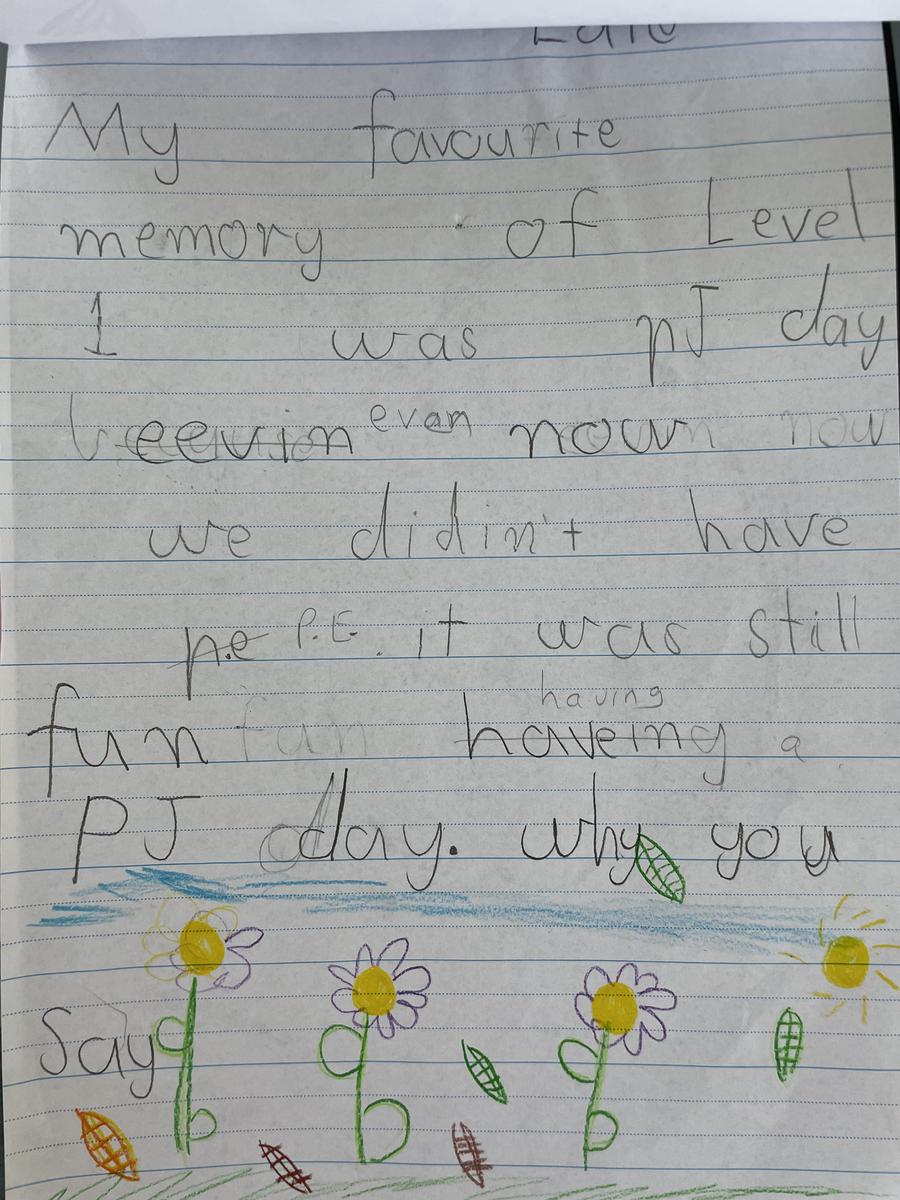 My favourite
memory of Level
1 was pJ day
eevin even now now
we didin't have
p.e P.E. it was still
fun fun haveing having a
PJ day. why you
Say